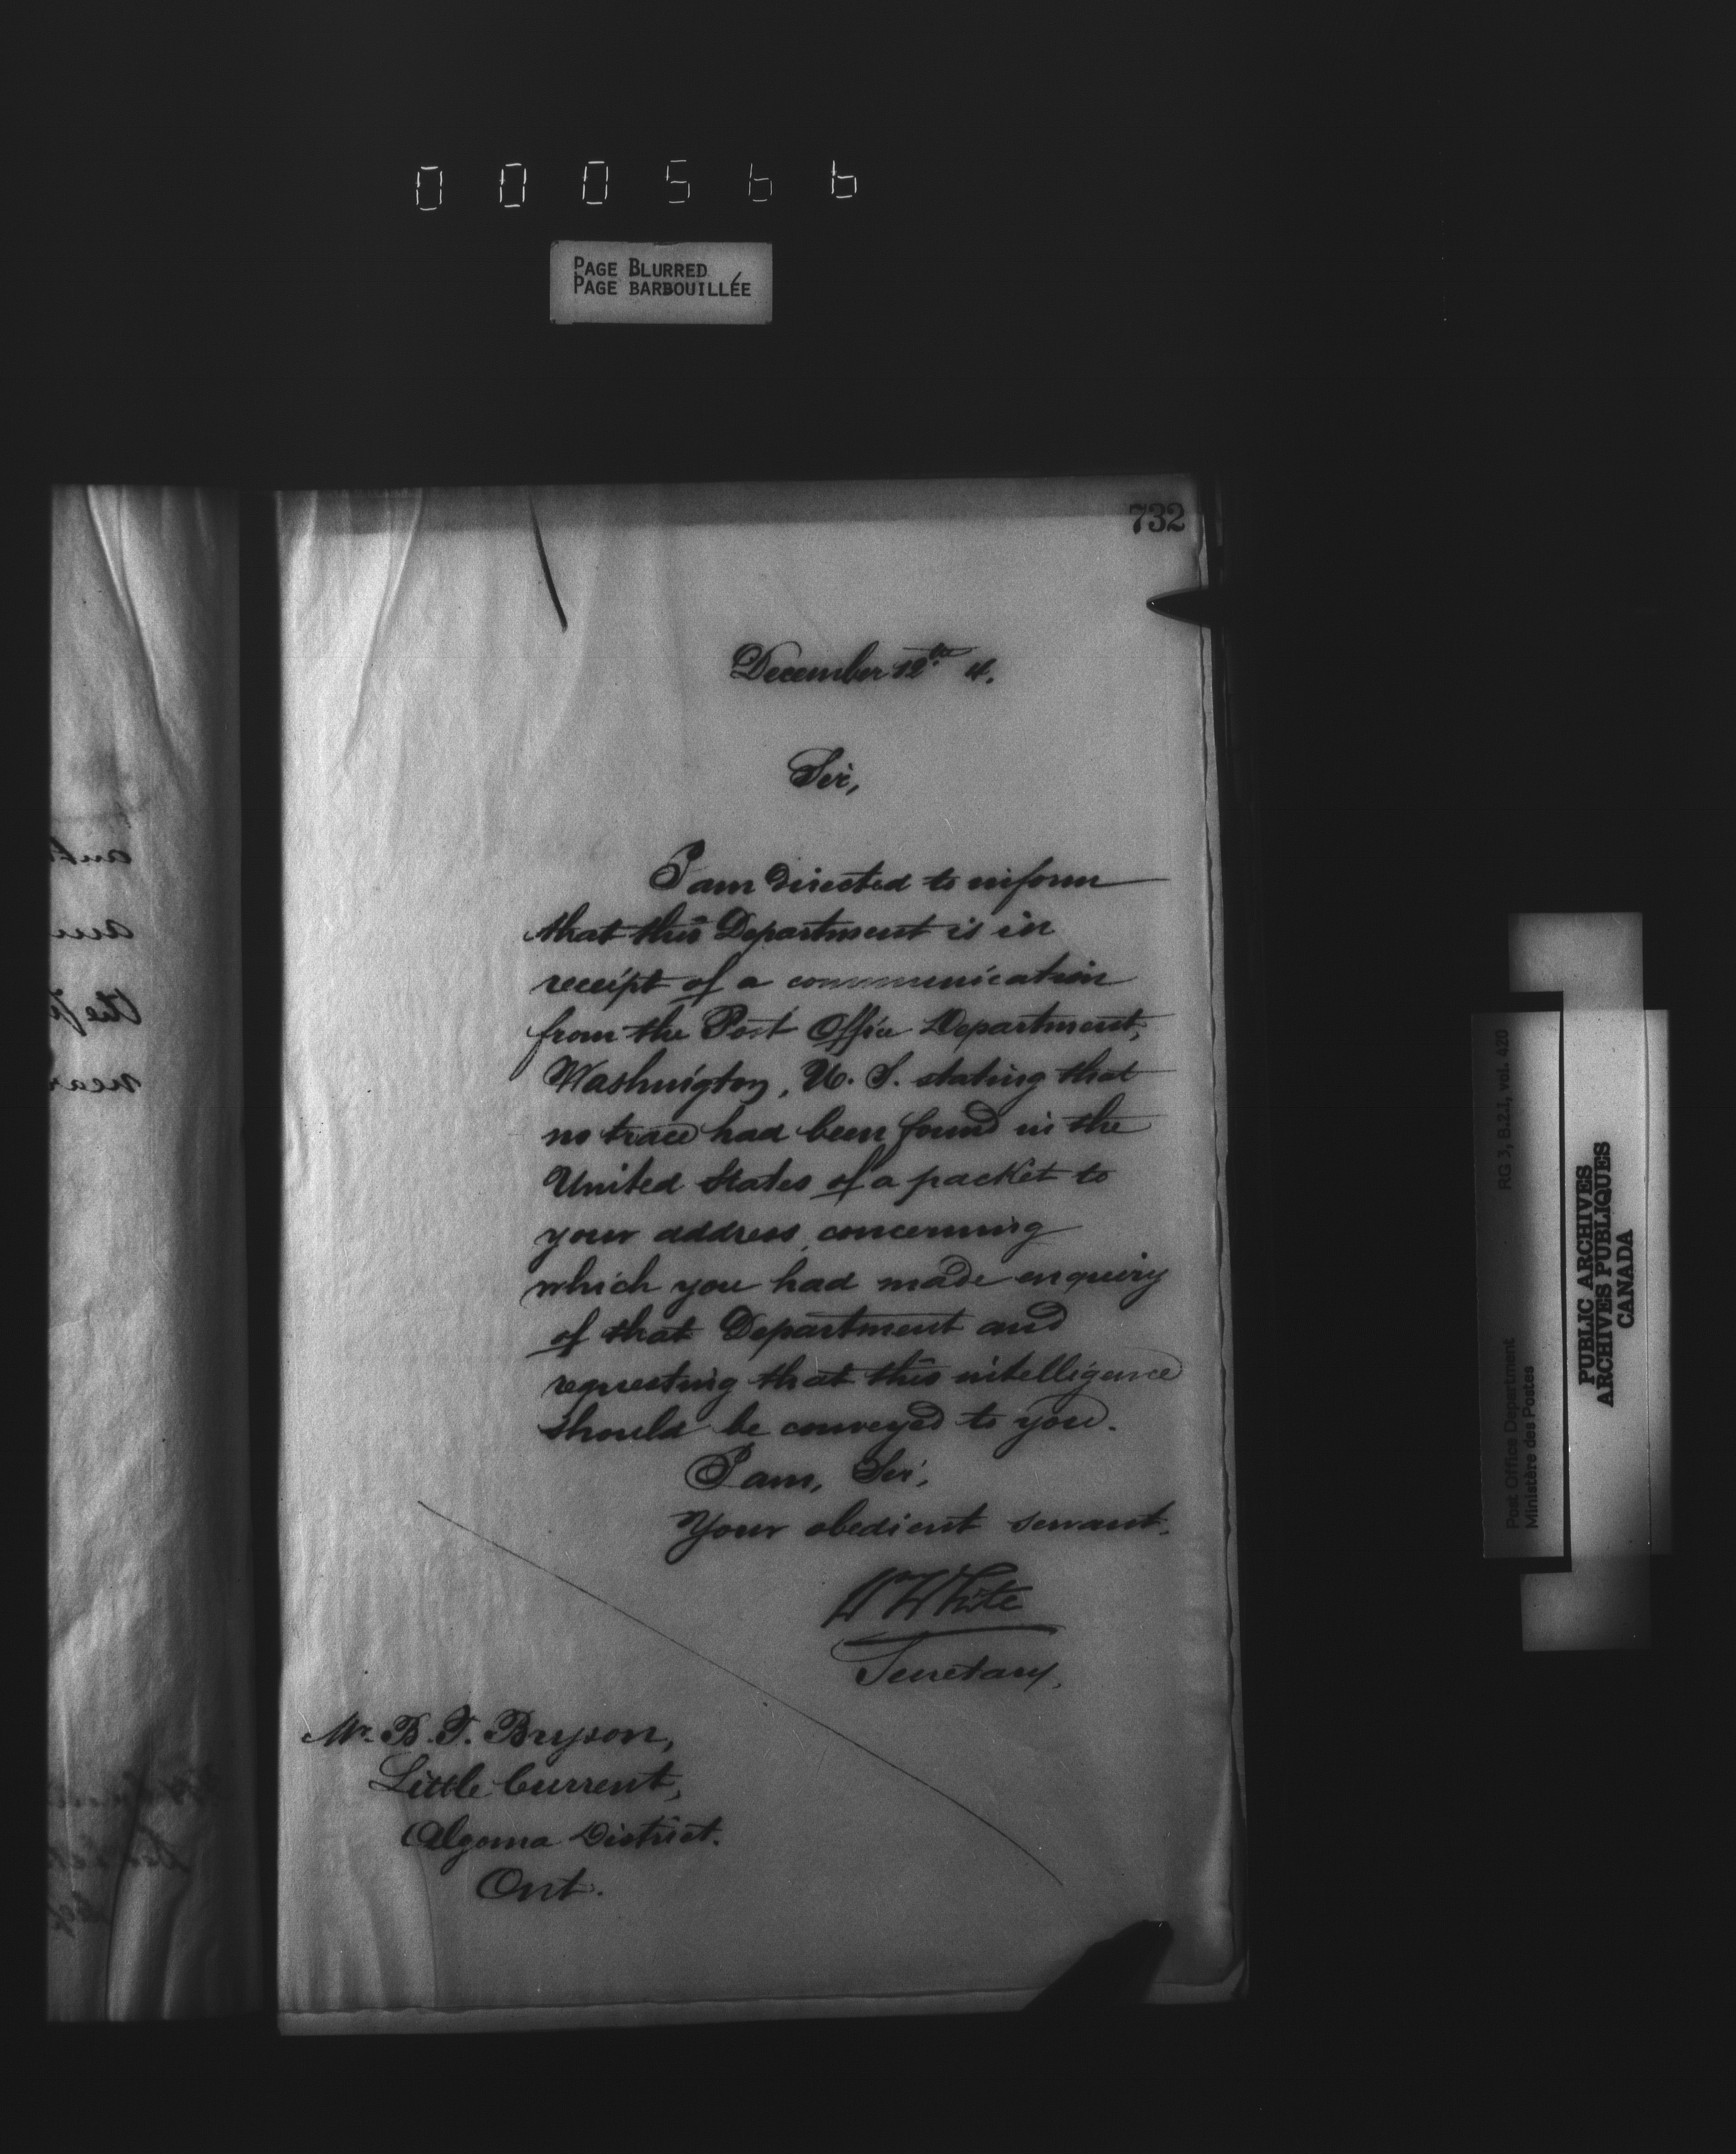 000566
PAGE BLURRED
PAGE BARBOUILLÉE
732
December 12th 4.
Sir,
I am directed to inform
that this Department is in
receipt of a communication
from the Post Office Department,
Washington, U. S. stating that
no trace had been found in the
United States of a packet to
your address, concerning
which you had made enquiry
of that Department and
requesting that this intelligence
should be conveyed to you.
I am, Sir,
Your obedient servant.
W White
Secretary,
Mr. B. T. Bryson,
Little Current,
Algoma District.
Ont.
RG 3, B.2.1, vol. 420
Post Office Department
Ministère des Postes
PUBLIC ARCHIVES
ARCHIVES PUBLIQUES
CANADA